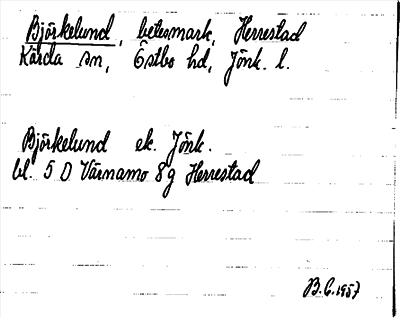 Björkelund, betesmark, Herrestad
Kärda sn, Östbo hd, Jönk. l.
Björkelund ek. Jönk.
bl. 5 D Värnamo 8g Herrestad
B.C. 1957